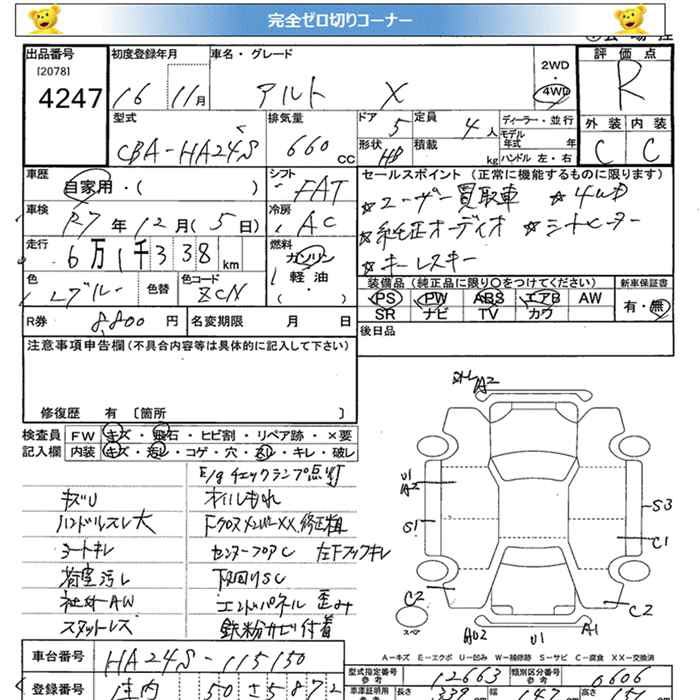 完全ゼロ切りコーナー
出品番号 初度登録年月 車名・グレード 評価点
[2078] 2WD
4247 16 11月 アルト X 4WD R
型式 排気量 ドア 5 定員 4人 ディーラー・並行 外装 内装
CBA-HA24S 660CC 形状 HB 積載 kg モデル年式 年 C C
ハンドル 左・右
車歴 シフト セールスポイント(正常に機能するものに限ります)
自家用・( ) FAT ☆ユーザー買取車 ☆4WD
車検 R7年12月(5日) 冷房 AC ☆純正オーディオ ☆シートヒーター
走行 6万1千338km 燃料 ガソリン ☆キーレスキー
軽油
( )
色 ブルー 色替 色コード ZCN 装備品(純正品に限り○をつけてください) 新車保証書
PS PW ABS エアB AW 有・無
SR ナビ TV カワ
R券 8,800円 名変期限 月 日 後日品
注意事項申告欄(不具合内容等は具体的に記入して下さい)
修復歴 有 〔箇所 〕
検査員 FW キズ・飛石・ヒビ割・リペア跡・×要
記入欄 内装 キズ・汚レ・コゲ・穴・スレ・キレ・破レ
E/gチェックランプ点灯
キズU オイルもれ
ハンドルスレ大 Fクロスメンバー××修正粗
シートキレ センターフロアC
荷室汚レ 下回りSC
社外AW エンドパネル歪み
スタッドレス 鉄粉カビ付着
A2
U1
A2
S1
S3
C1
C2
C2
スペア
AU2 U1 A1
A-キズ E-エクボ U-凹み W-補修跡 S-サビ C-腐食 XX-交換済
車台番号 HA24S-115150 型式指定番号 12663 類別区分番号 0606
登録番号 庄内 50 さ5872 長さ 339cm 幅 147cm 高さ